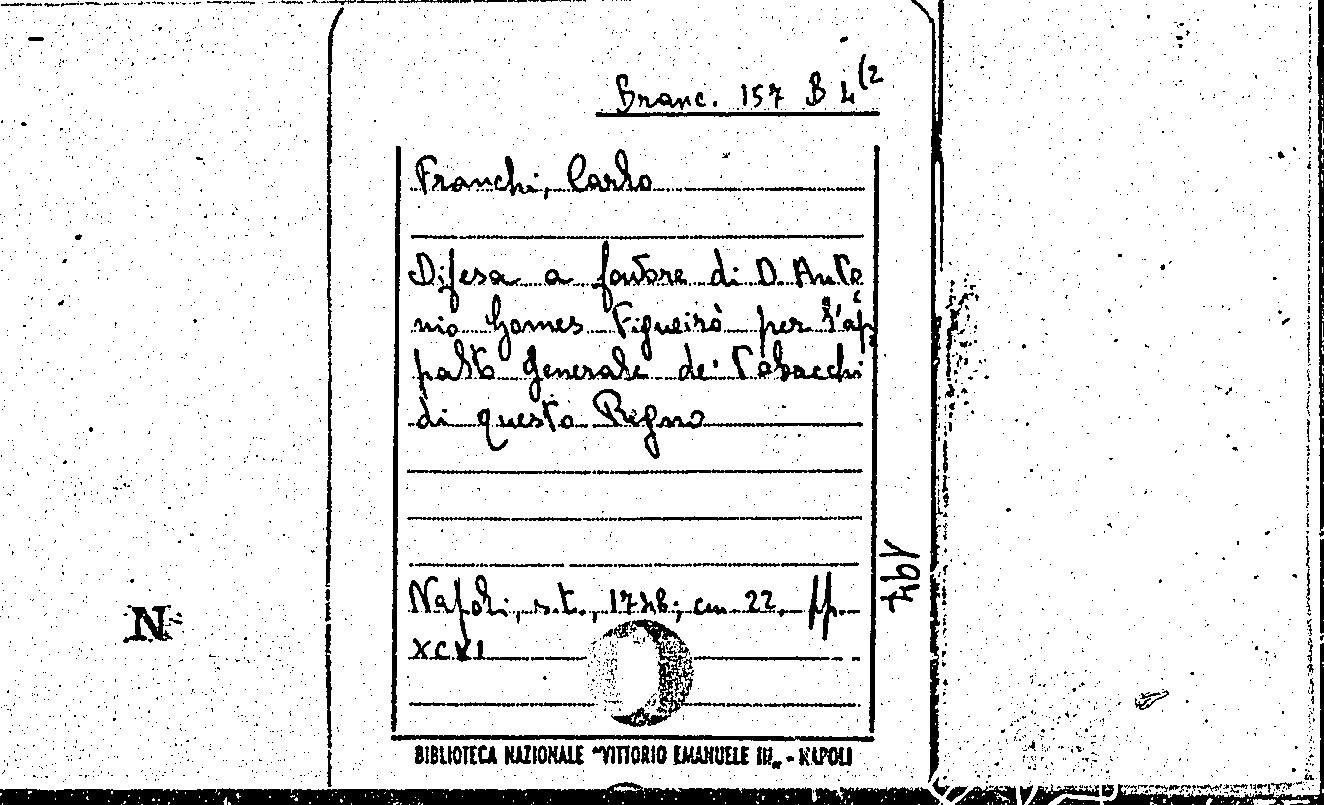 Branc. 157 B 4(2
Franchi, Carlo
Difesa a favore di D. Anto
nio Gomes Figueirò per l'ap
palto generale de' Tabacchi
di questo Regno
Napoli, s.t., 1748; cm 22. pp.
XCVI
BIBLIOTECA NAZIONALE "VITTORIO EMANUELE III" - NAPOLI
N